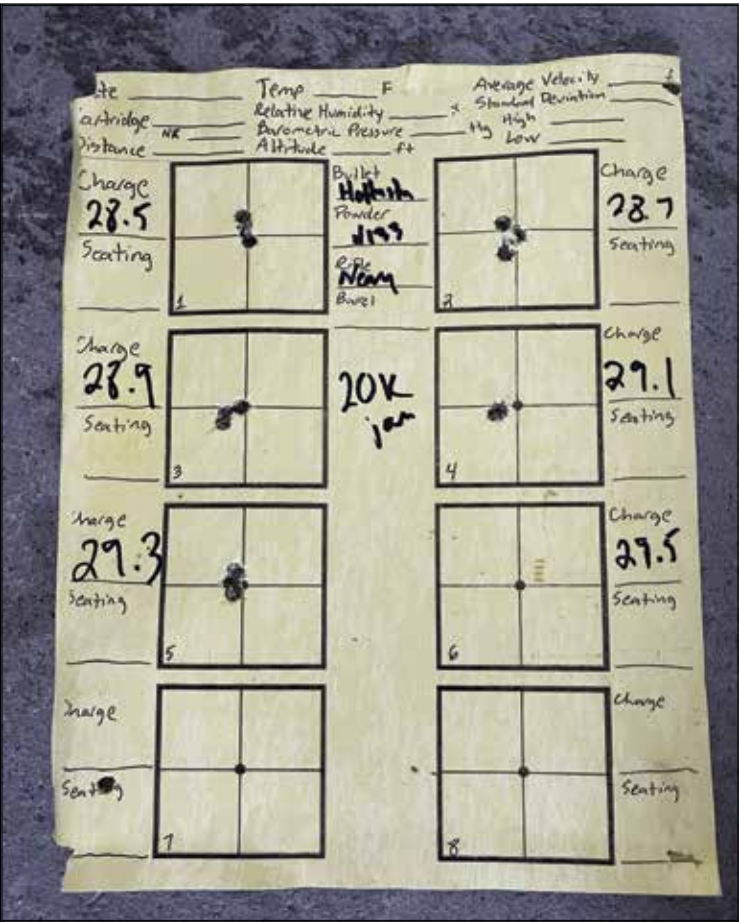 te Temp F Average Velocity
artridge Relative Humidity % Standard Deviation
NR Barometric Pressure Hg High
Distance Altitude ft Low
Charge
28.5
Seating
1
Bullet
Powder
Rifle
Barrel
Charge
28.7
Seating
2
Charge
28.9
Seating
3
20K
jam
Charge
29.1
Seating
4
Charge
29.3
Seating
5
Charge
29.5
Seating
6
Charge
Seating
7
Charge
Seating
8